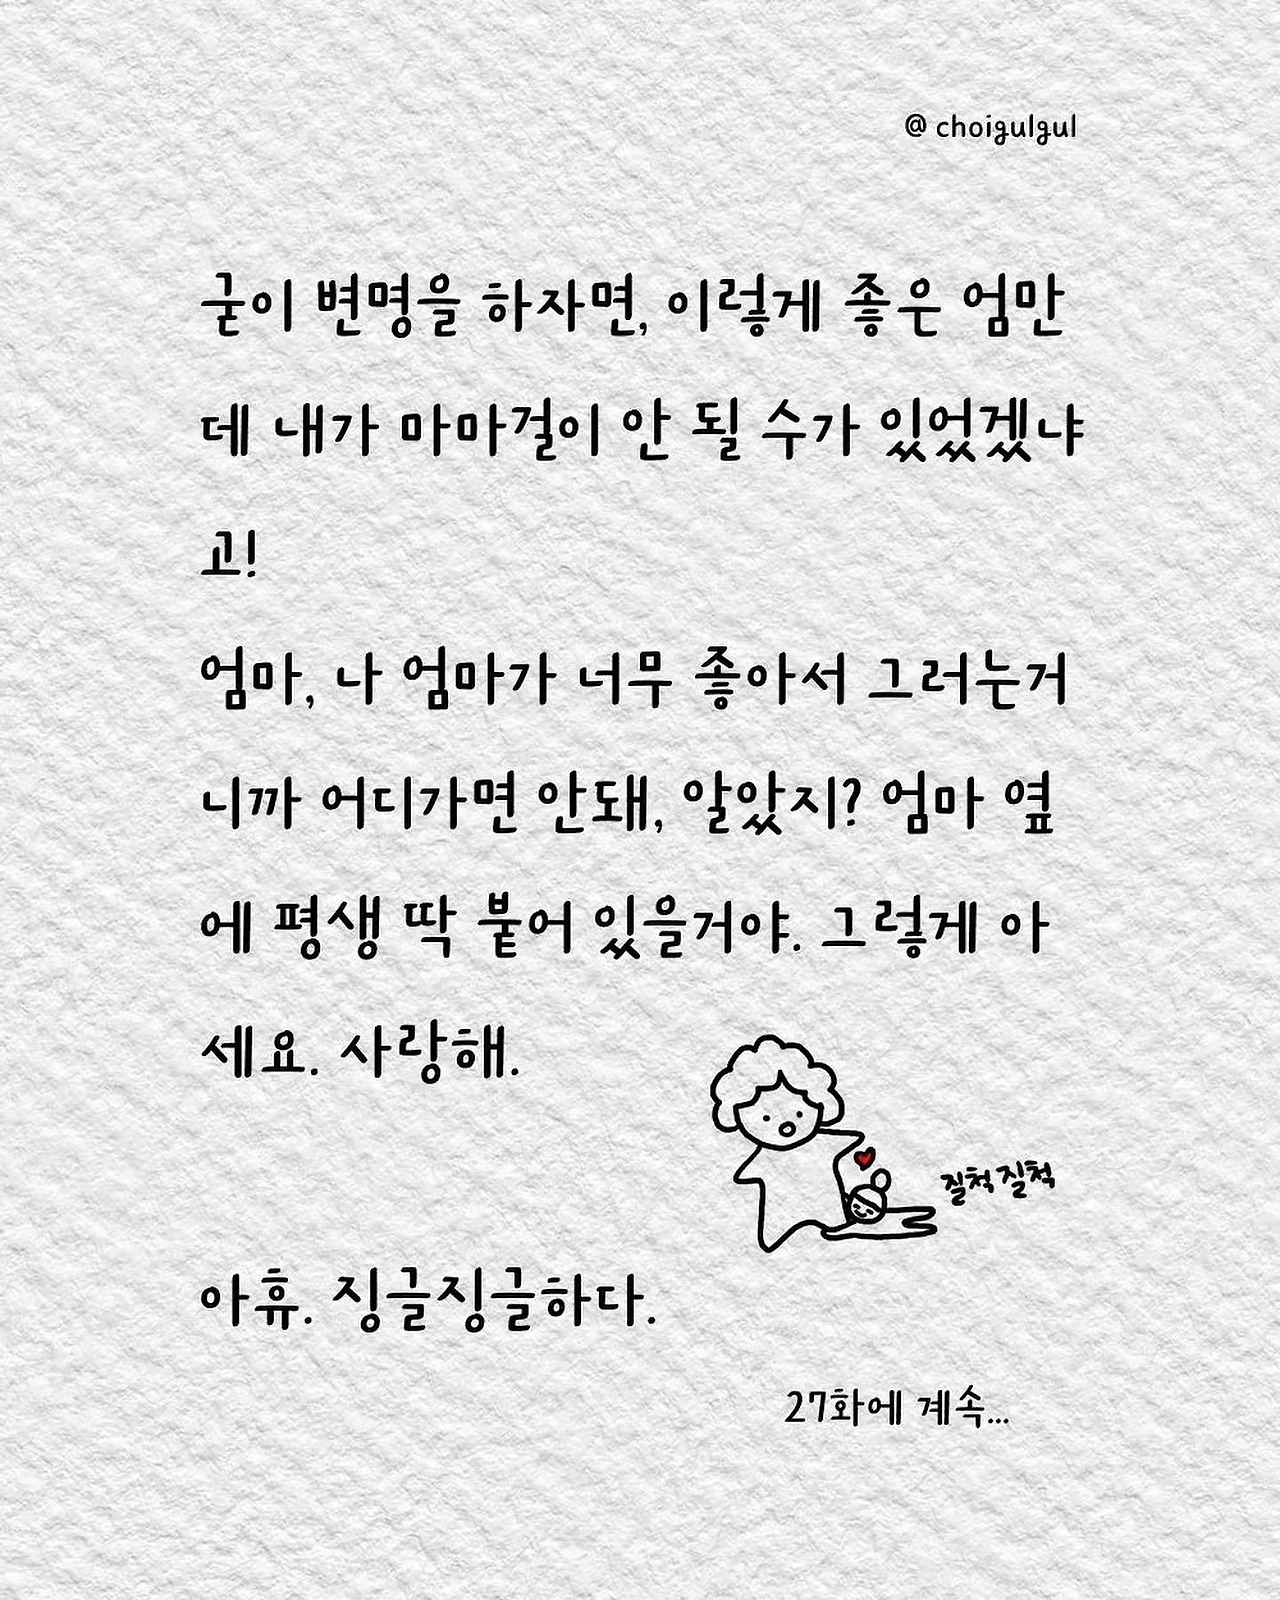 @ choigulgul
굳이 변명을 하자면, 이렇게 좋은 엄만
데 내가 마마걸이 안 될 수가 있었겠냐
고!
엄마, 나 엄마가 너무 좋아서 그러는거
니까 어디가면 안돼, 알았지? 엄마 옆
에 평생 딱 붙어 있을거야. 그렇게 아
세요. 사랑해.
질척질척
아휴. 징글징글하다.
27화에 계속...